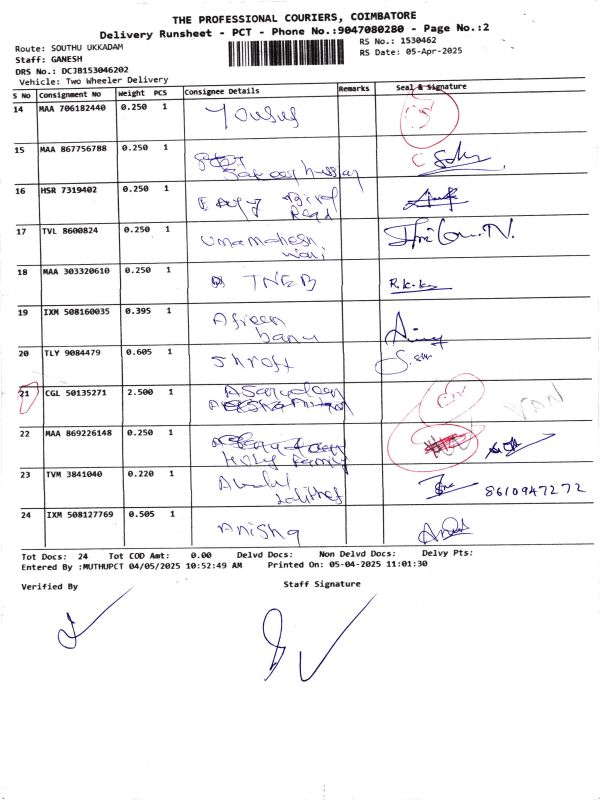 THE PROFESSIONAL COURIERS, COIMBATORE
Delivery Runsheet - PCT - Phone No.:9047080280 - Page No.:2
Route: SOUTHU UKKADAM
RS No.: 1530462
Staff: GANESH
RS Date: 05-Apr-2025
DRS No.: DCJB153046202
Vehicle: Two Wheeler Delivery
S No Consignment No Weight PCS Consignee Details Remarks Seal & Signature
14 MAA 706182440 0.250 1 Yousuf
15 MAA 867756788 0.250 1
16 HSR 7319402 0.250 1
17 TVL 8600824 0.250 1 Umamahesh
wari
18 MAA 303320610 0.250 1 TNEB R.K.K
19 IXM 508160035 0.395 1 Afreen
banu
20 TLY 9084479 0.605 1 Shroff
21 CGL 50135271 2.500 1 VAN
22 MAA 869226148 0.250 1
Holy Family
23 TVM 3841040 0.220 1 8610947272
24 IXM 508127769 0.505 1 Anisha
Tot Docs: 24 Tot COD Amt: 0.00 Delvd Docs: Non Delvd Docs: Delvy Pts:
Entered By :MUTHUPCT 04/05/2025 10:52:49 AM Printed On: 05-04-2025 11:01:30
Verified By Staff Signature